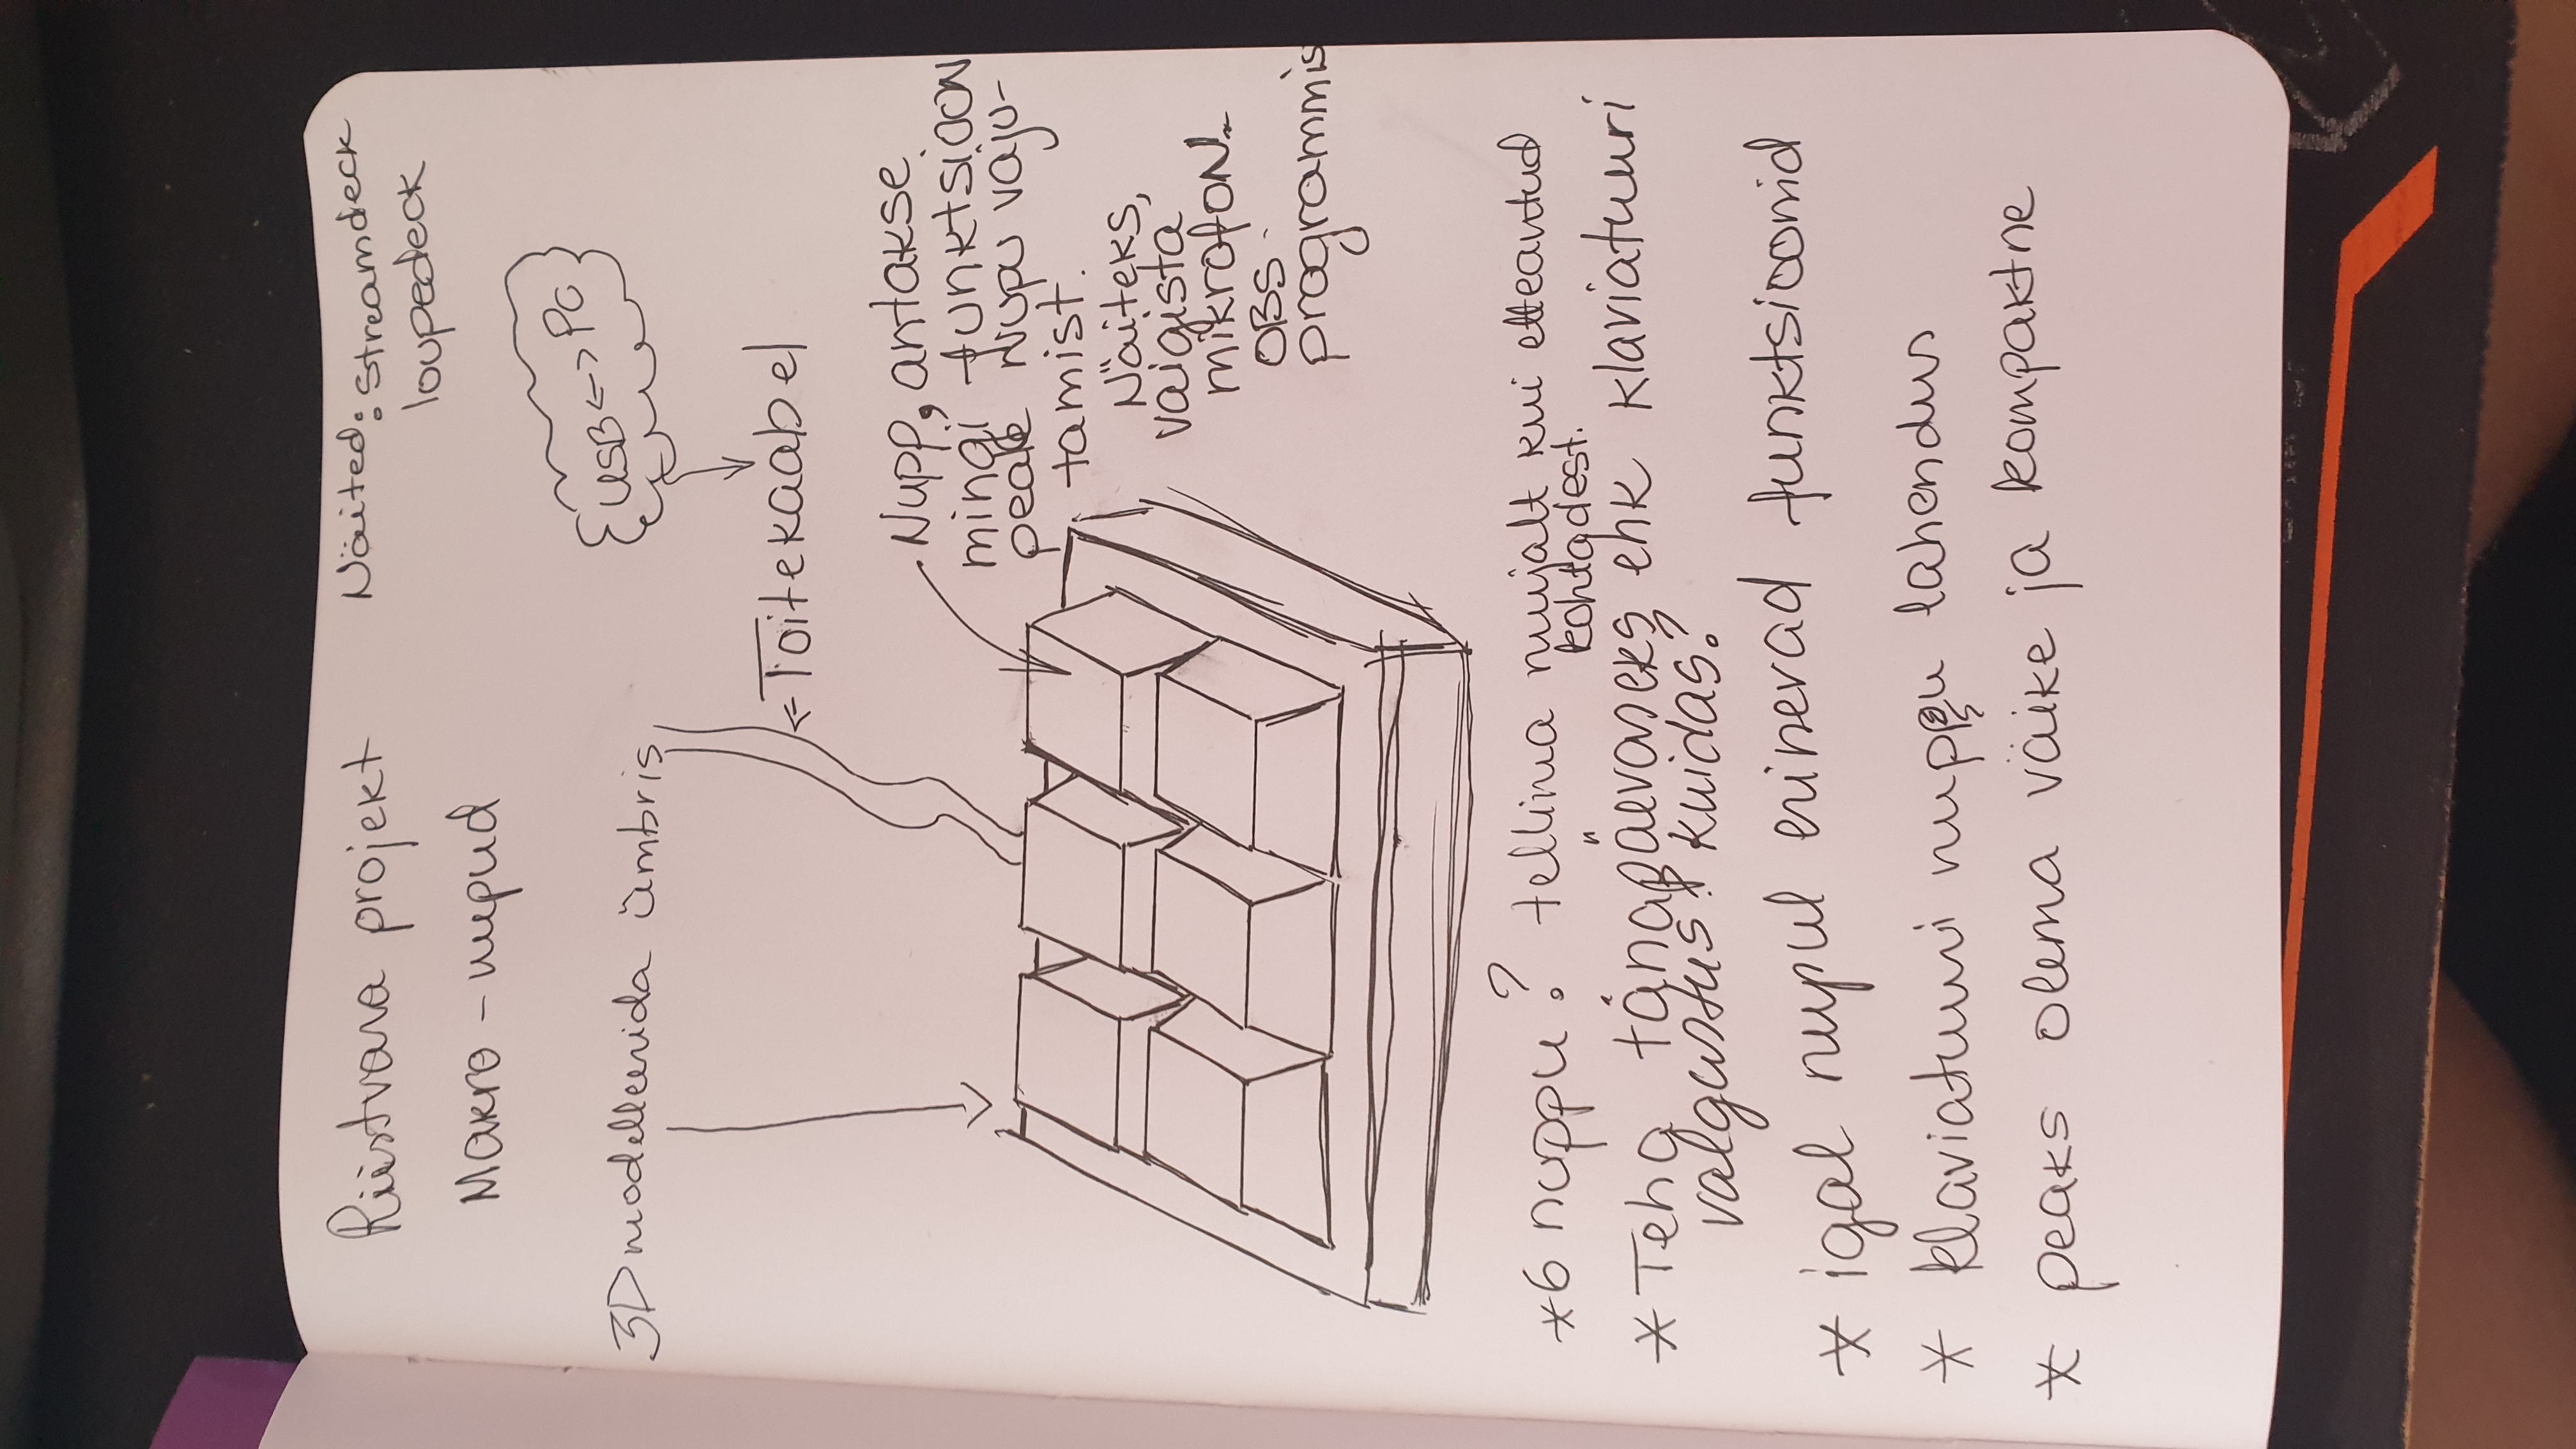 Riistvara projekt
Makro - nupud
Näited: streamdeck
loupedeck
3D modelleerida ümbris
USB <-> PC
← Toitekaabel
Nupp, antakse
mingi funktsioon
peale nupu vaju-
tamist.
Näiteks,
vaigista
mikrofon
OBS
programmis
* 6 nuppu? tellima mujalt kui etteantud
kohtadest.
* Teha tänapäevaseks ehk klaviatuuri
valgustus? kuidas?
* igal nupul erinevad funktsioonid
* klaviatuuri nuppu lahendus
* peaks olema väike ja kompaktne